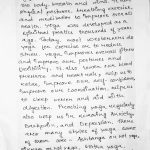 the body, breath and mind. It uses
physical postures, breathing exercise,
and meditation to improve overall
health. Yoga was developed as a
spiritual practice thousands of years
ago. Today, most westerners do
yoga for exercise or to reduce
stress. Yoga improves overall fitness
and improve our posture and
flexibility. It also lowers our blood
pressure and heart rate, help us to
relax, improve our self-confidence,
improve our coordination, helps us
to sleep better and aid with
digestion. Practicing yoga regularly
also help us in reducing Anxiety
Backpain, and Depression. There
are many styles of yoga some
of them are:- Ashtanga
yoga, Hatha yoga,